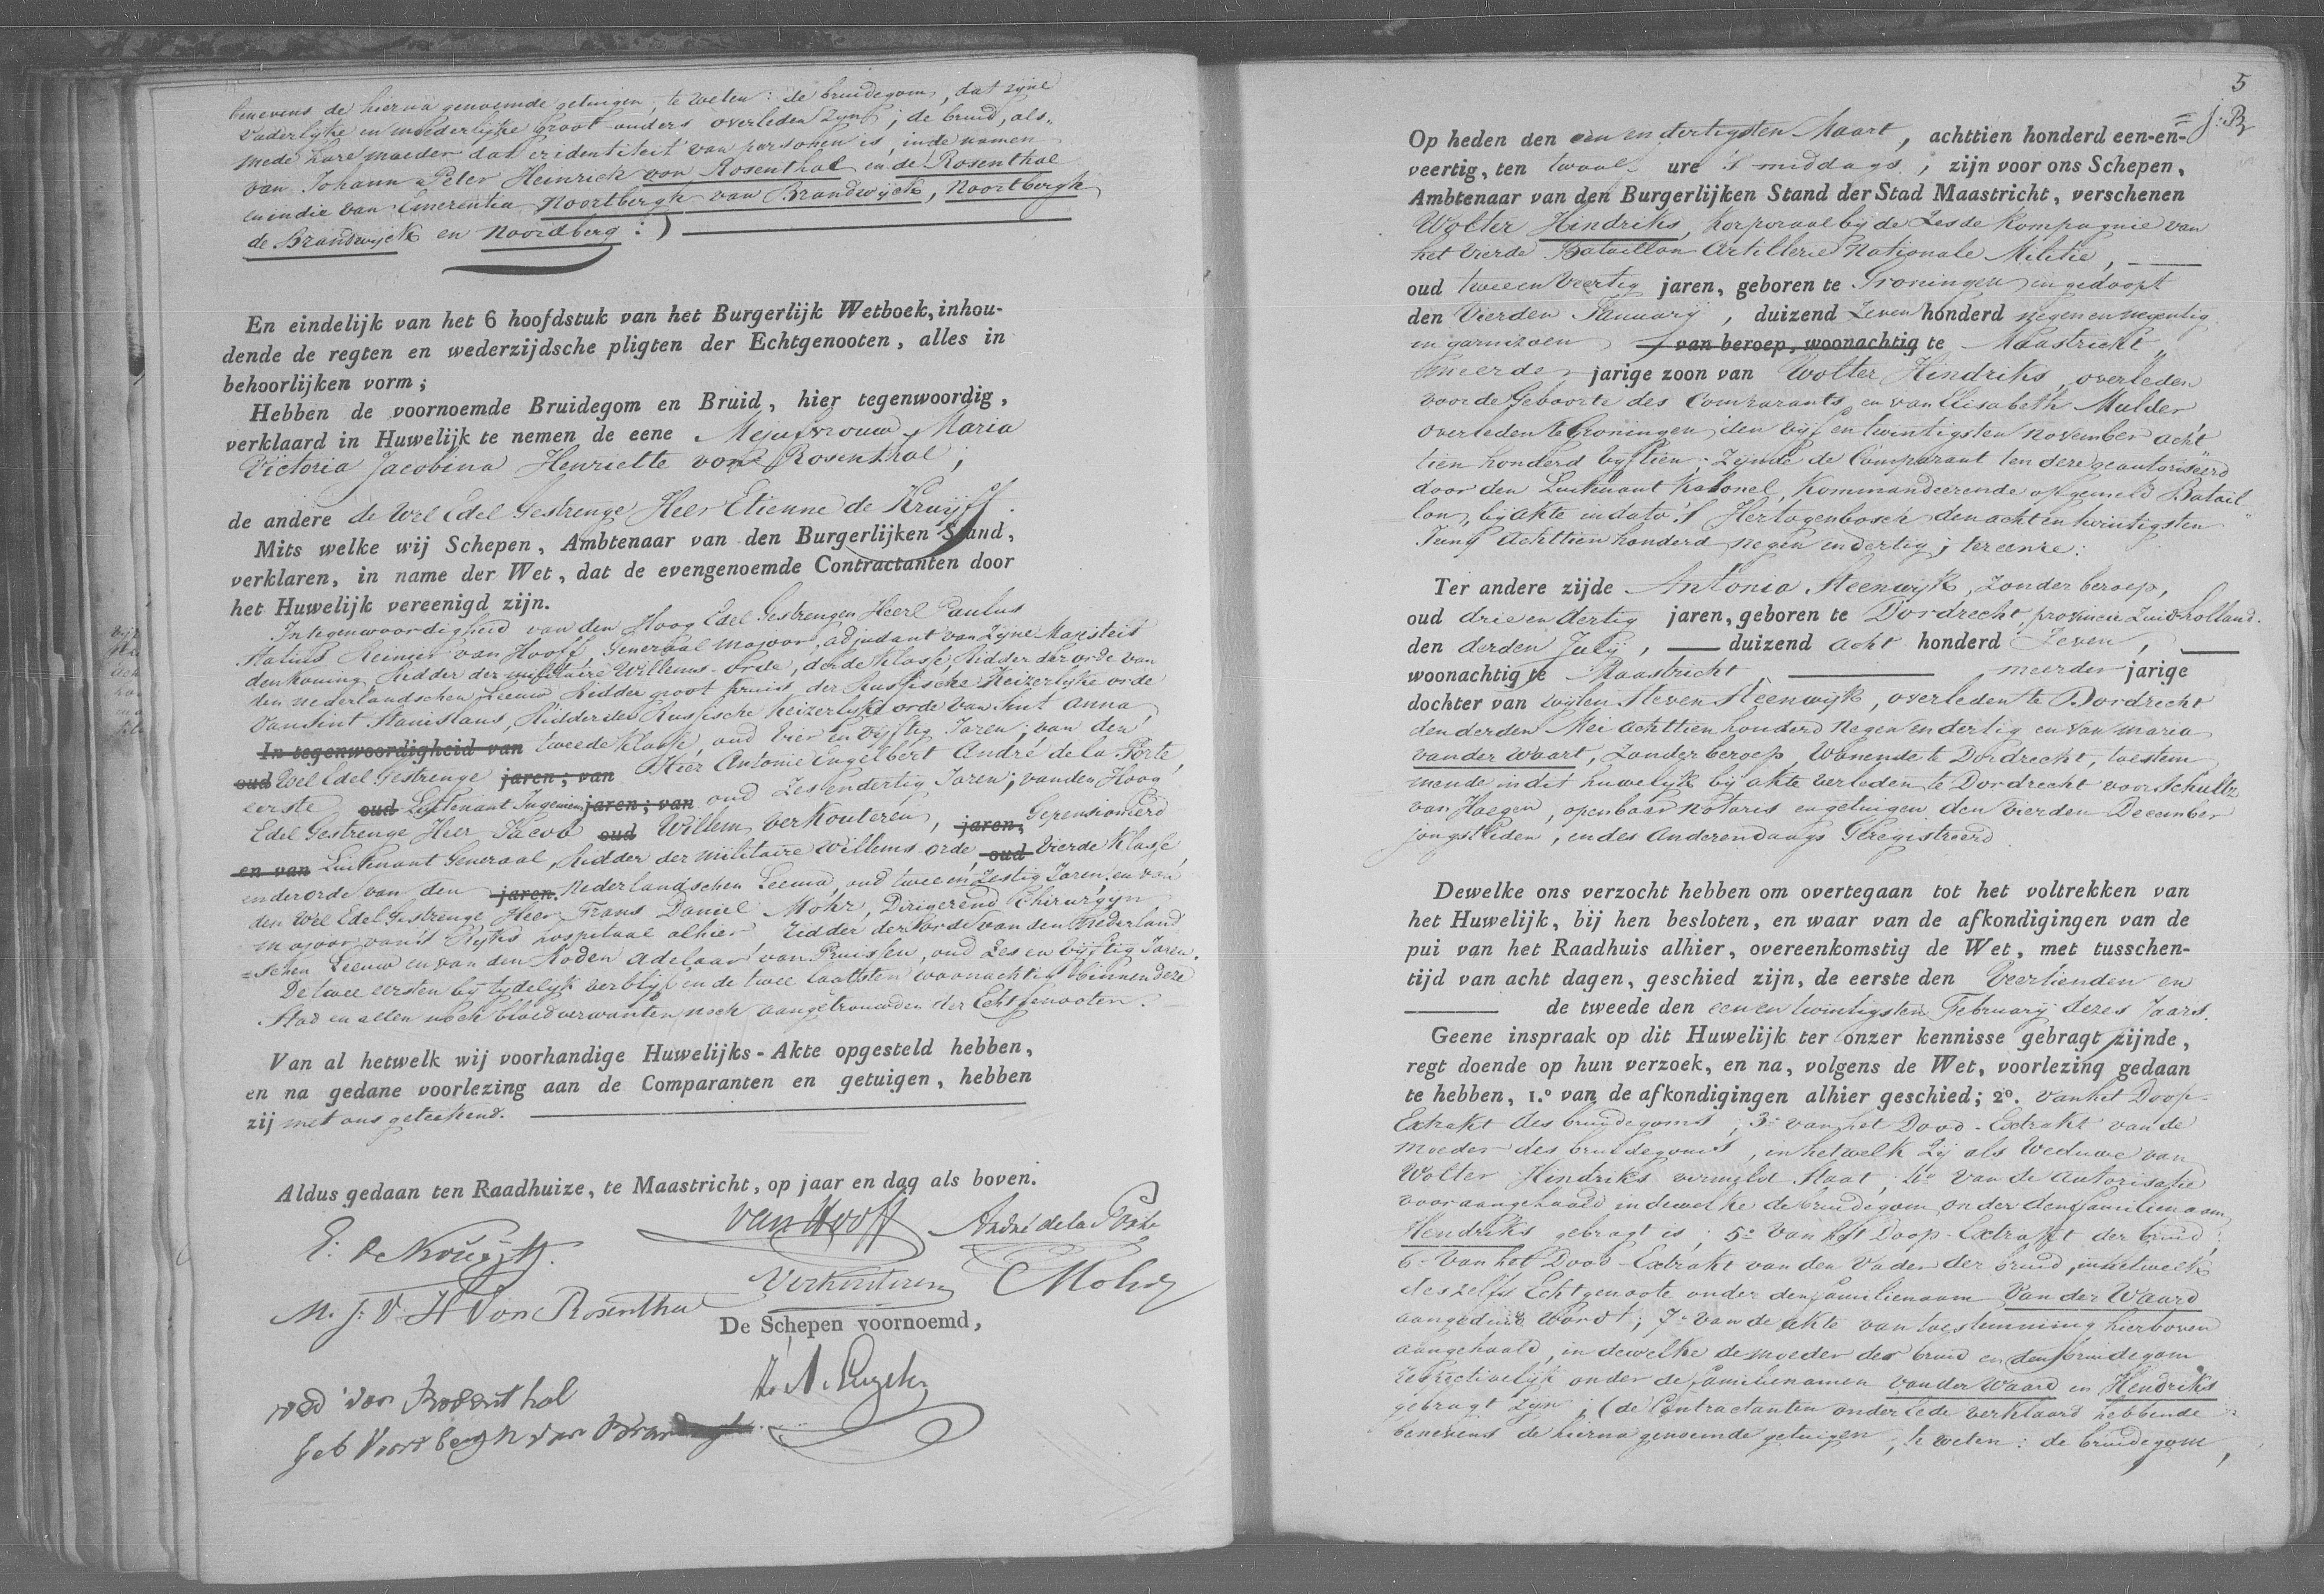 benevens de hierna genoemde getuigen, te weten: de bruidegom, dat zijne
vaderlijke en moederlijke groot-ouders overleden zijn; de bruid, als-
mede hare moeder dat er identiteit van personen is, in de namen
van Johann Peter Heinrich von Rosenthal en de Rosenthal
en in die van Emerentia Noortbergh van Brandwijck, Noortbergh
de Brandwijck en Noordberg:)
En eindelijk van het 6 hoofdstuk van het Burgerlijk Wetboek, inhou-
dende de regten en wederzijdsche pligten der Echtgenooten, alles in
behoorlijken vorm;
Hebben de voornoemde Bruidegom en Bruid, hier tegenwoordig,
verklaard in Huwelijk te nemen de eene Mejufvrouw Maria
Victoria Jacobina Henriette von Rosenthal,
de andere de Wel Edel Gestrenge Heer Etienne de Kruijff.
Mits welke wij Schepen, Ambtenaar van den Burgerlijken Stand,
verklaren, in name der Wet, dat de evengenoemde Contractanten door
het Huwelijk vereenigd zijn.
In tegenwoordigheid van den Hoog Edel Gestrengen Heere Paulus
Statius Reinier van Hooff, Generaal Majoor, adjudant van Zijne Majesteit
den Koning, Ridder der militaire Willems-orde, derde Klasse, Ridder der orde van
den nederlandschen Leeuw, Ridder groot kruis der Russische Keizerlijke orde
van Sint Stanislaus, Ridder der Russische Keizerlijke orde van Sint Anna,
In tegenwoordigheid van tweede Klasse, oud vier en vijftig Jaren; van den
oud Wel Edel Gestrenge jaren; van Heer Antonie Engelbert André de la Porte,
eerste oud Luitenant Ingenieur jaren; van oud Zes en dertig Jaren; van den Hoog
Edel Gestrenge Heer Jacob oud Willem Verkouteren, jaren, Gepensioneerd
en van Luitenant Generaal, Ridder der militaire Willems-orde, oud Vierde Klasse,
en der orde van den jaren. Nederlandschen Leeuw, oud twee en Zestig Jaren, en van
den Wel Edel Gestrenge Heer Frans Daniel Mohr, Dirigerend Chirurgijn
majoor van 's Rijks hospitaal alhier Ridder der orde van den Nederland-
schen Leeuw en van den Roden adelaar van Pruissen, oud Zes en vijftig Jaren.
De twee eersten bij tijdelijk verblijf en de twee laatsten woonachtig binnen deze
Stad en allen noch bloedverwanten noch aangetrouwden der Echtgenooten.
Van al hetwelk wij voorhandige Huwelijks-Akte opgesteld hebben,
en na gedane voorlezing aan de Comparanten en getuigen, hebben
zij met ons geteekend.
Aldus gedaan ten Raadhuize, te Maastricht, op jaar en dag als boven.
van Hooff André de la Porte
E. de Kruijff.
Verkouteren Mohr
M. J. V. H. Von Rosenthal
De Schepen voornoemd,
wed von Rosenthal
geb Noortbergh van
5
Op heden den een en dertigsten Maart, achttien honderd een-en-
veertig, ten twaalf ure 's middags, zijn voor ons Schepen,
Ambtenaar van den Burgerlijken Stand der Stad Maastricht, verschenen
Wolter Hindriks, Korporaal bij de Zesde Kompagnie van
het Vierde Bataillon Artillerie Nationale Militie,
oud twee en Veertig jaren, geboren te Groningen en gedoopt
den Vierden January, duizend Zeven honderd negen en negentig
in garnizoen van beroep, woonachtig te Maastricht
meerder jarige zoon van Wolter Hindriks, overleden
voor de Geboorte des Comparants, en van Elisabeth Mulder
overleden te Groningen, den vijf en twintigsten November acht
tien honderd vijftien; Zijnde de Comparant ten deze geautoriseerd
door den Luitenant Kolonel, Kommandeerende opgemeld Batail-
lon, bij akte in dato 's Hertogenbosch den acht en twintigsten
Juny Achttien honderd negen en dertig; ter eenre:
Ter andere zijde Antonia Steenwijk, zonder beroep,
oud drie en dertig jaren, geboren te Dordrecht, provincie Zuid-holland.
den derden July, duizend acht honderd Zeven,
woonachtig te Maastricht meerder jarige
dochter van wijlen Steven Steenwijk, overleden te Dordrecht
den derden Mei achttien honderd Negen en dertig en van maria
van der Waart, Zonder beroep, Wonende te Dordrecht, toestem
mende in dit huwelijk bij akte verleden te Dordrecht voor Schultz
van Haegen, openbaar Notaris en getuigen den vierden December
jongstleden, en des Anderendaags Geregistreerd
Dewelke ons verzocht hebben om overtegaan tot het voltrekken van
het Huwelijk, bij hen besloten, en waar van de afkondigingen van de
pui van het Raadhuis alhier, overeenkomstig de Wet, met tusschen-
tijd van acht dagen, geschied zijn, de eerste den Veertienden en
de tweede den een en twintigsten February dezes Jaars.
Geene inspraak op dit Huwelijk ter onzer kennisse gebragt zijnde,
regt doende op hun verzoek, en na, volgens de Wet, voorlezing gedaan
te hebben, 1.º van de afkondigingen alhier geschied; 2º. van het Doop-
Extrakt des bruidegoms; 3º van het Dood-Extrakt van de
moeder des bruidegoms, in hetwelk zij als Weduwe van
Wolter Hindriks vermeld staat; 4º van de Autorisatie
voor aangehaald in dewelke de bruidegom onder den familienaam
Hendriks gebragt is; 5º van het Doop-Extrakt der bruid;
6º van het Dood-Extrakt van den Vader der bruid, in hetwelk
deszelfs Echtgenoote onder den familienaam Van der Waard
aangeduid Wordt; 7º van de akte van toestemming hierboven
aangehaald, in dewelke de moeder der bruid en den bruidegom
respectivelijk onder de familienamen van der Waard en Hendriks
gebragt zijn; (de Contractanten onder Eede verklaard hebbende
benevens de hierna genoemde getuigen, te weten: de bruidegom,